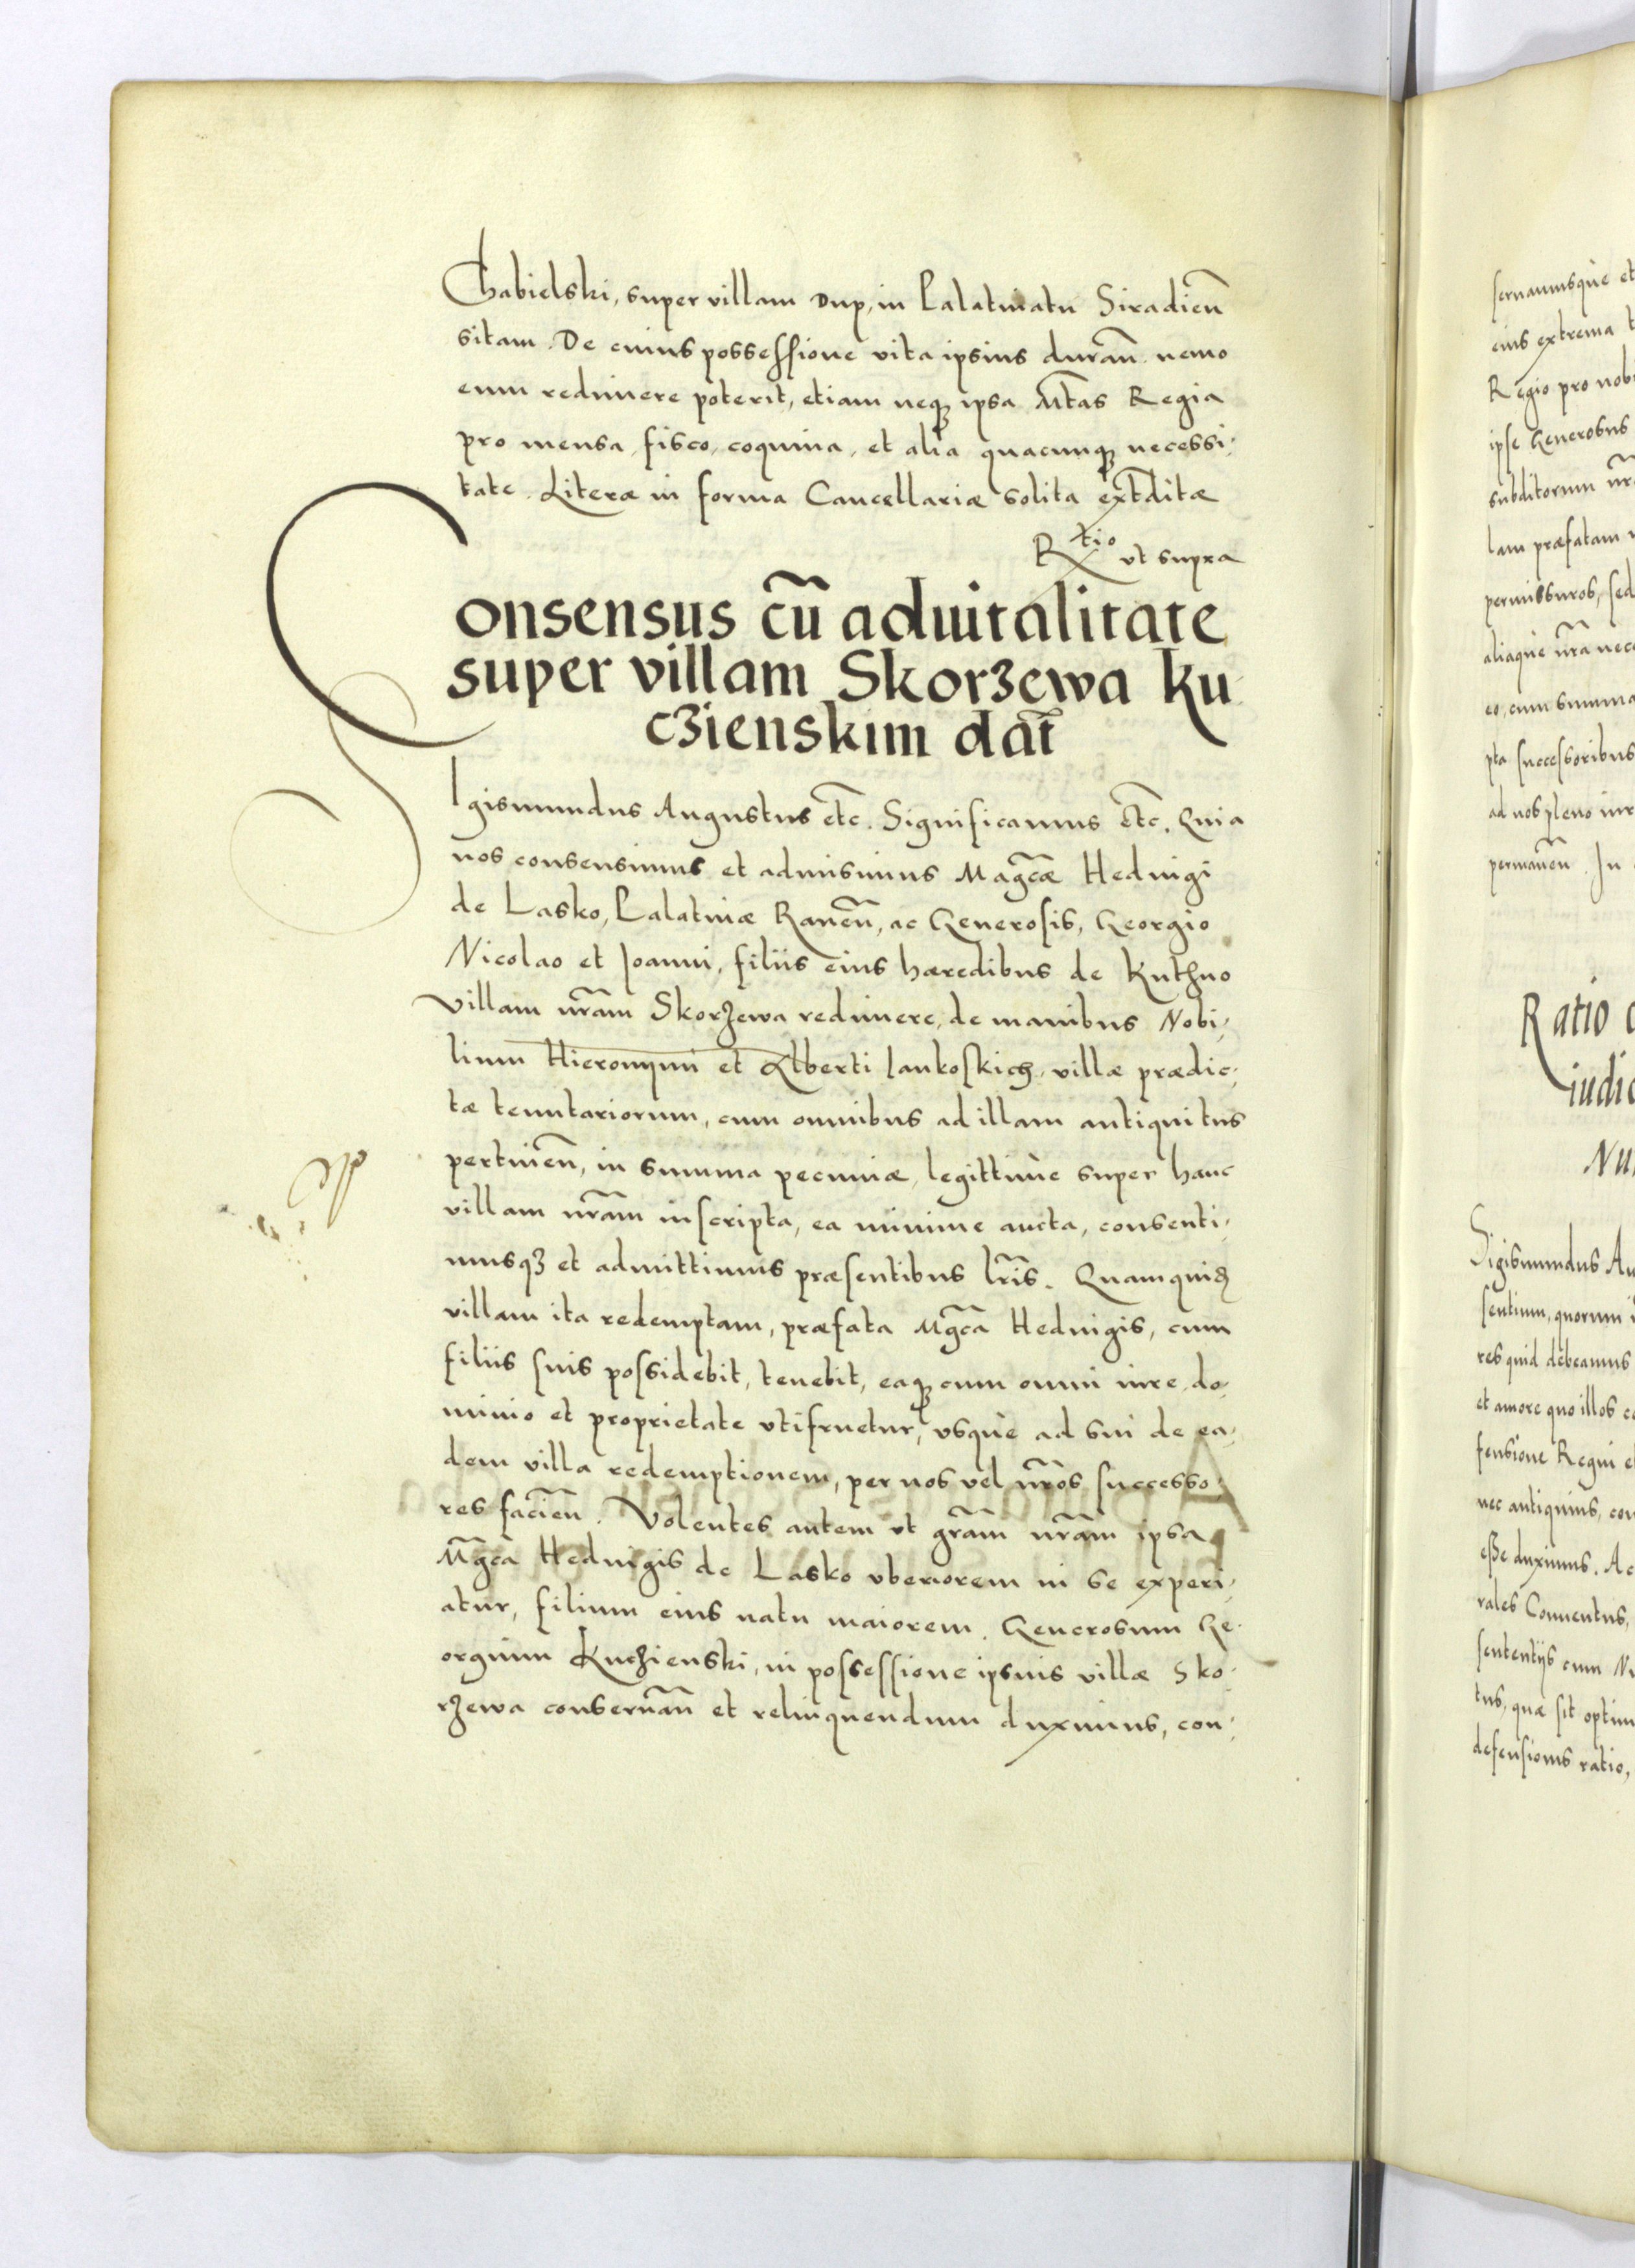 Chabielski, super villam Dup, in Palatinatu Siradieñ
sitam. De cuius possessione vita ipsius durañ. nemo
eum redimere poterit, etiam neq̃ ipsa M̃tas Regia
pro mensa, fisco, coquina, et alia quacunq̃ necessi-
tate. Literæ in forma Cancellariæ solita extr̃ditæ
R̃tio ut supra
Consensus cũ aduitalitate
super villam Skorzewa Ku-
czienskim dat̃
Sigismundus Augustus etc̃. Significamus etc̃. Quia
nos consensimus et admisimus Magc̃æ Heduigi
de Lasko, Palatinæ Raueñ, ac Generosis, Georgio
Nicolao et Joanni, filiis eius hæredibus de Kuthno
villam nr̃am Skorzewa redimere, de manibus Nobi-
lium Hieronymi et Alberti Jankoskich, villæ prædic-
tæ tenutariorum, cum omnibus ad illam antiquitus
pertineñ, in summa pecuniæ, legittimè super hanc
villam nr̃am inscripta, ea minime aucta, consenti-
musqȝ et admittimus præsentibus lr̃is. Quamquid̃
villam ita redemptam, præfata Mgc̃a Heduigis, cum
filiis suis possidebit, tenebit, eaq̃ cum omni iure, do-
minio et proprietate vtifruetur, vsquè ad sui de ea-
dem villa redemptionem, per nos vel nr̃os successo-
res facieñ. Volentes autem vt gr̃am nr̃am ipsa
Mgc̃a Heduigis de Lasko vberiorem in se experi-
atur, filium eius natu maiorem. Generosum Ge-
orgium Kuczienski, in possessione ipsius villæ Sko-
rzewa conseruañ et relinquendum duximus, con-
seruamusquè et
eius extrema
Regio pro nobi
ipse Generosus
subditorum nr̃
lam præfatam
permissuros, sed
aliaquè nr̃a nece
eo, cum summa
pta successoribus
ad nos pleno iur
permaneñ. In
Ratio
iudic
Nu
Sigismundus Au
sentium, quorum
res quid debeamus
et amore quo illos
fensione Regni e
nec antiquius, con
esse duximus. Ac
rales Conuentus,
sententijs cum N
tus, quæ sit optim
defensionis ratio,